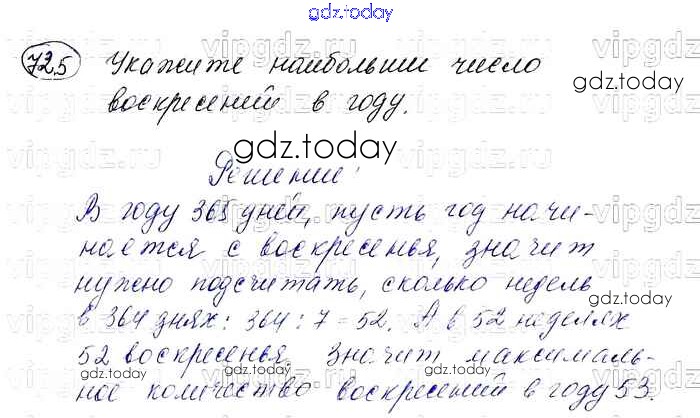 gdz.today
725 Укажите наибольши число
воскресений в году.
gdz.today
gdz.today
Решение:
В году 365 дней, пусть год начи-
нается с воскресенья, значит
нужно подсчитать, сколько недель
gdz.today
в 364 днях: 364 : 7 = 52. А в 52 неделях
52 воскресенья. Значит максималь-
ное количество воскресений в году 53.
gdz.today